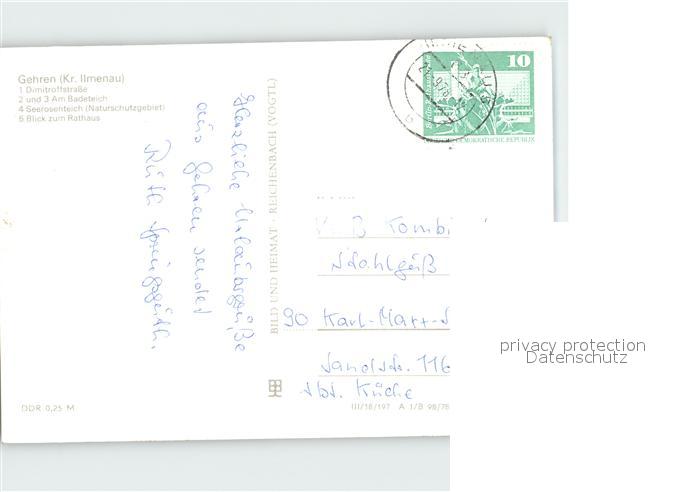 Gehren (Kr. Ilmenau)
1 Dimitroffstraße
2 und 3 Am Badeteich
4 Seerosenteich (Naturschutzgebiet)
5 Blick zum Rathaus
Herzliche Urlaubsgrüße
aus Gehren sendet
Ruth
BILD UND HEIMAT · REICHENBACH (VOGTL)
10
DEMOKRATISCHE REPUBLIK
B Kombi
Stahlguß
90 Karl-Marx-S
Sandstr. 116
Abt. Küche
DDR 0,25 M
III/18/197 A 1/B 98/78
privacy protection
Datenschutz